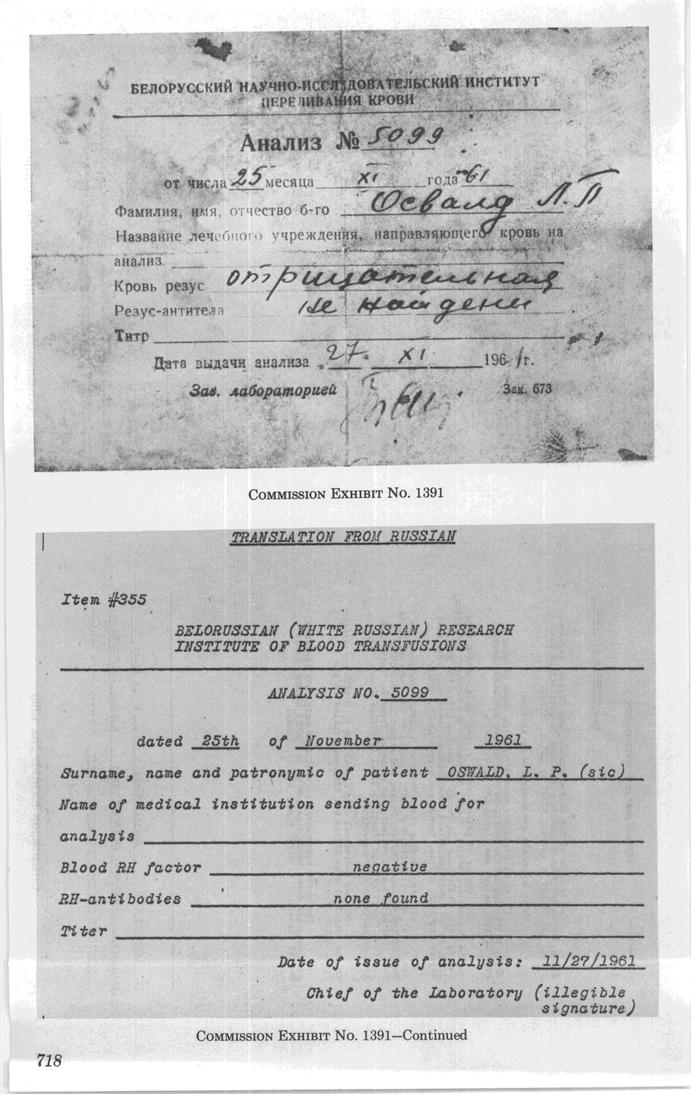 БЕЛОРУССКИЙ НАУЧНО-ИССЛЕДОВАТЕЛЬСКИЙ ИНСТИТУТ
ПЕРЕЛИВАНИЯ КРОВИ
Анализ № 5099
от числа 25 месяца XI года 61
Фамилия, имя, отчество б-го Освалд Л. П
Название лечебного учреждения, направляющего кровь на
анализ.
Кровь резус отрицательная
Резус-антитела не найдены
Титр
Дата выдачи анализа „27" XI 1961 г.
Зав. лабораторией Зак. 673
COMMISSION EXHIBIT No. 1391
TRANSLATION FROM RUSSIAN
Item #355
BELORUSSIAN (WHITE RUSSIAN) RESEARCH
INSTITUTE OF BLOOD TRANSFUSIONS
ANALYSIS NO. 5099
dated 25th of November 1961
Surname, name and patronymic of patient OSWALD, L. P. (sic)
Name of medical institution sending blood for
analysis
Blood RH factor negative
RH-antibodies none found
Titer
Date of issue of analysis: 11/27/1961
Chief of the Laboratory (illegible
signature)
COMMISSION EXHIBIT No. 1391—Continued
718